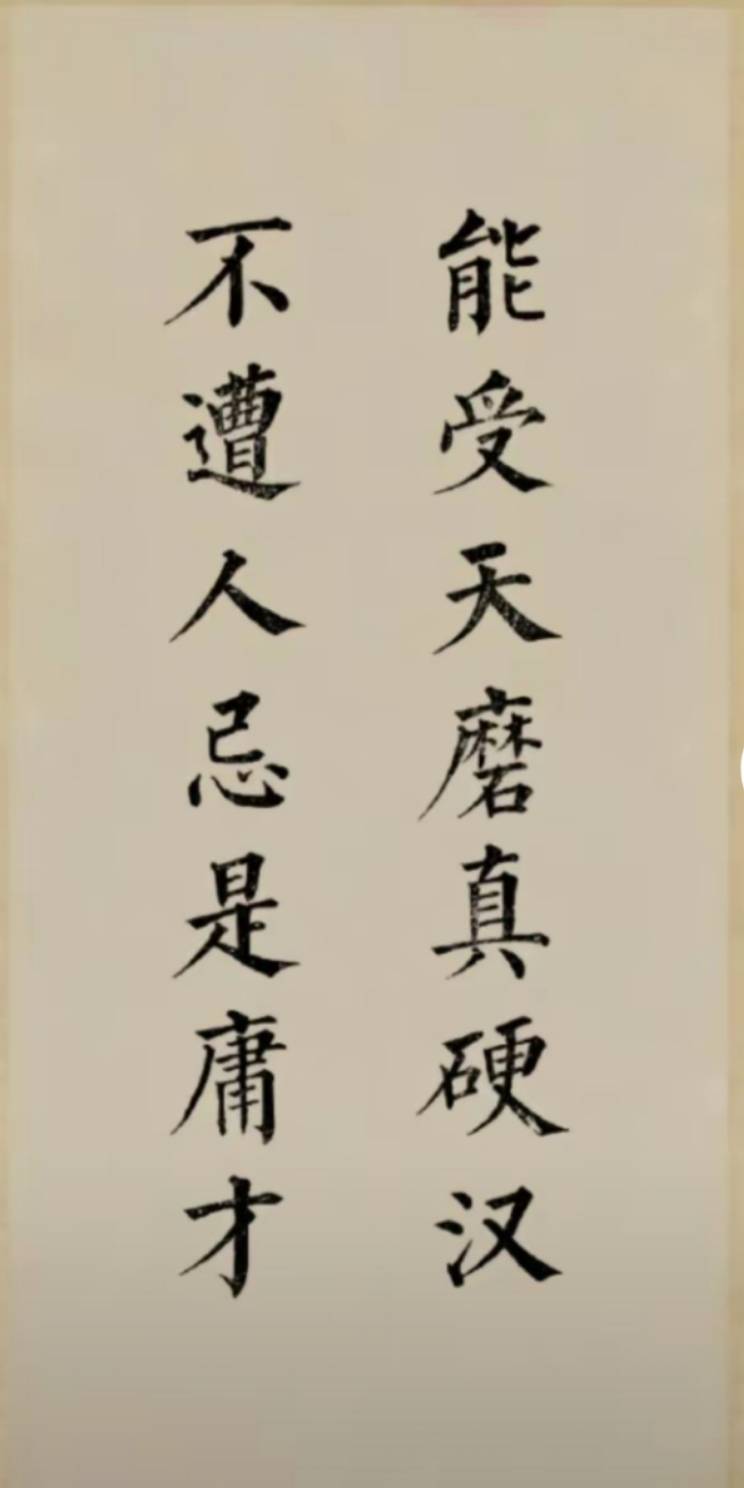 能受天磨真硬汉
不遭人忌是庸才